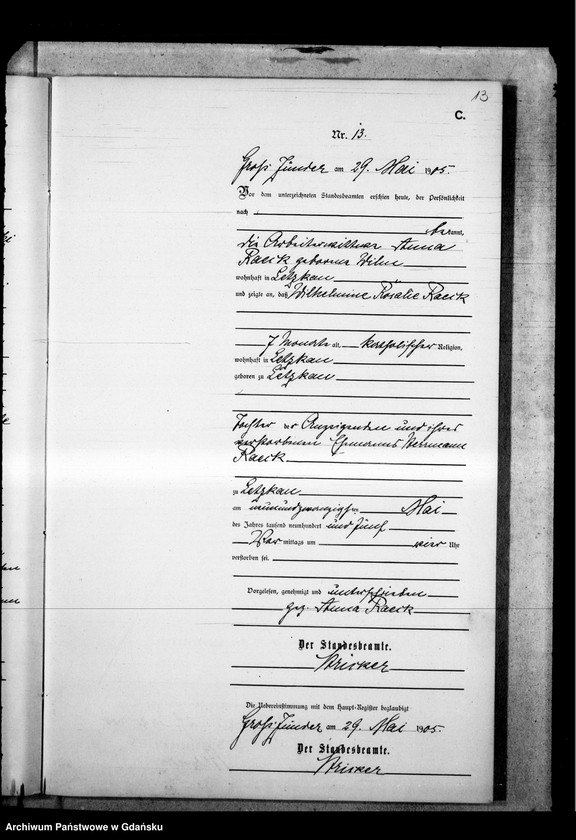 13
C.
Nr. 13.
Groß Zünder am 29. Mai 1905.
Vor dem unterzeichneten Standesbeamten erschien heute, der Persönlichkeit
nach
bekannt,
die Arbeiterwittwe Anna
Raeik geborene
wohnhaft in Letzkau
und zeigte an, daß Wilhelmine Rosalie Raeik
7 Monate alt, katholischer Religion,
wohnhaft in Letzkau
geboren zu Letzkau
Tochter der Anzeigenden und ihres
verstorbenen Ehemannes Herrmann
Raeik
zu Letzkau
am neunundzwanzigsten Mai
des Jahres tausend neunhundert und fünf
Vormittags um vier Uhr
verstorben sei.
Vorgelesen, genehmigt und unterschrieben
gez. Anna Raeik
Der Standesbeamte.
Die Uebereinstimmung mit dem Haupt-Register beglaubigt
Groß Zünder am 29. Mai 1905.
Der Standesbeamte.
Archiwum Państwowe w Gdańsku